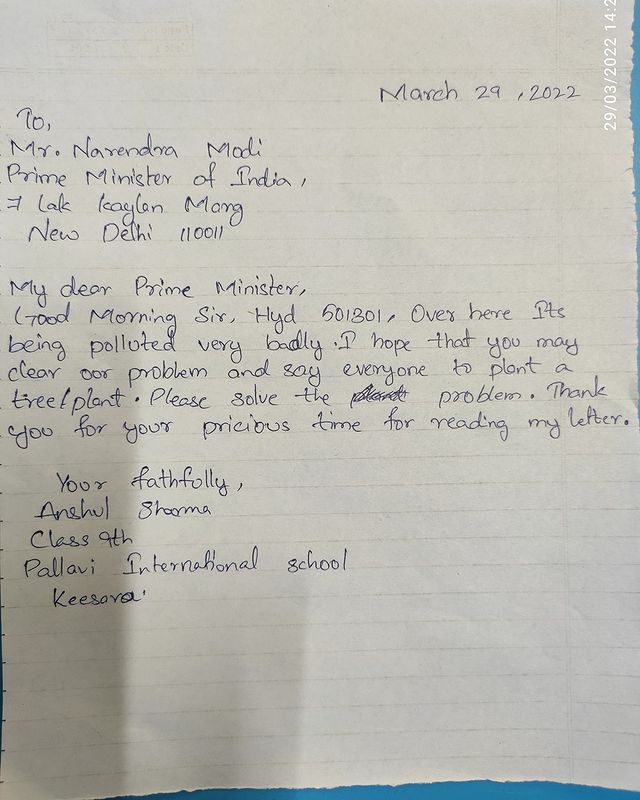 29/03/2022 14:2
March 29, 2022
To,
Mr. Narendra Modi
Prime Minister of India,
7 lak kaylan Marg
New Delhi 110011
My dear Prime Minister,
Good Morning Sir, Hyd 501301, Over here Its
being polluted very badly. I hope that you may
clear oor problem and say everyone to plant a
tree/plant. Please solve the problem. Thank
you for your pricious time for reading my letter.
Your fathfully,
Anshul Sharma
Class 9th
Pallavi International school
Keesara